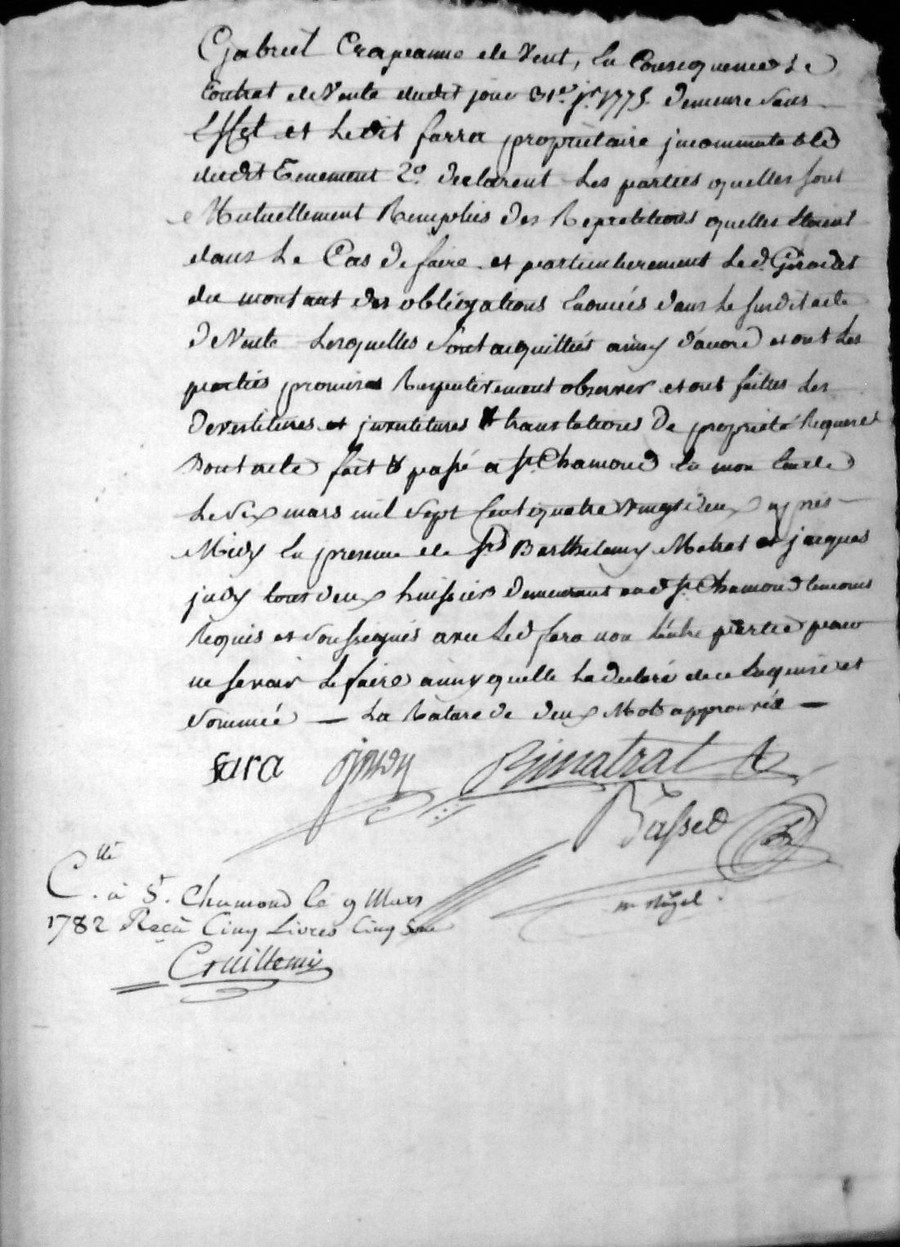 Gabriel Crapanne de Vent, En Consequence Le
Contrat de Vente dudit jour 31e. jer. 1775. demeure Sans
Effet et Ledit farra proprietaire jncommutable
dudit Tenement 2o. declarent Les parties quelles sont
Mutuellement Remplies des Repetitions quelles Etoient
dans Le Cas de faire et particulierement Led.
du montant des obligations Enoncés dans Le susdit acte
de Vente Lesquelles sont acquittées ainsy d'acord et ont Les
parties promis observer et ont faittes Les
devestitures et jnvestitures & translations De proprieté Requises
Dont acte fait & passé a St. Chamond En mon Etude
Le Six mars mil Sept Cent quatre vingt deux après
Midy En presence de Srs Barthelemy Matrat et jacques
judy tous deux huissiers demeurants aud. St. Chamond temoins
Requis et Soussignés avec Led. fara non L'autre partie pour
ne sçavoir Le faire ainsy quelle La declaré de ce Enquise et
Sommée — La Rature de deux Mots approuvée —
fara judy Bmatrat
Basset
Clle. à St. Chamond le 9 Mars
1782 Reçu Cinq Livres Cinq Sous